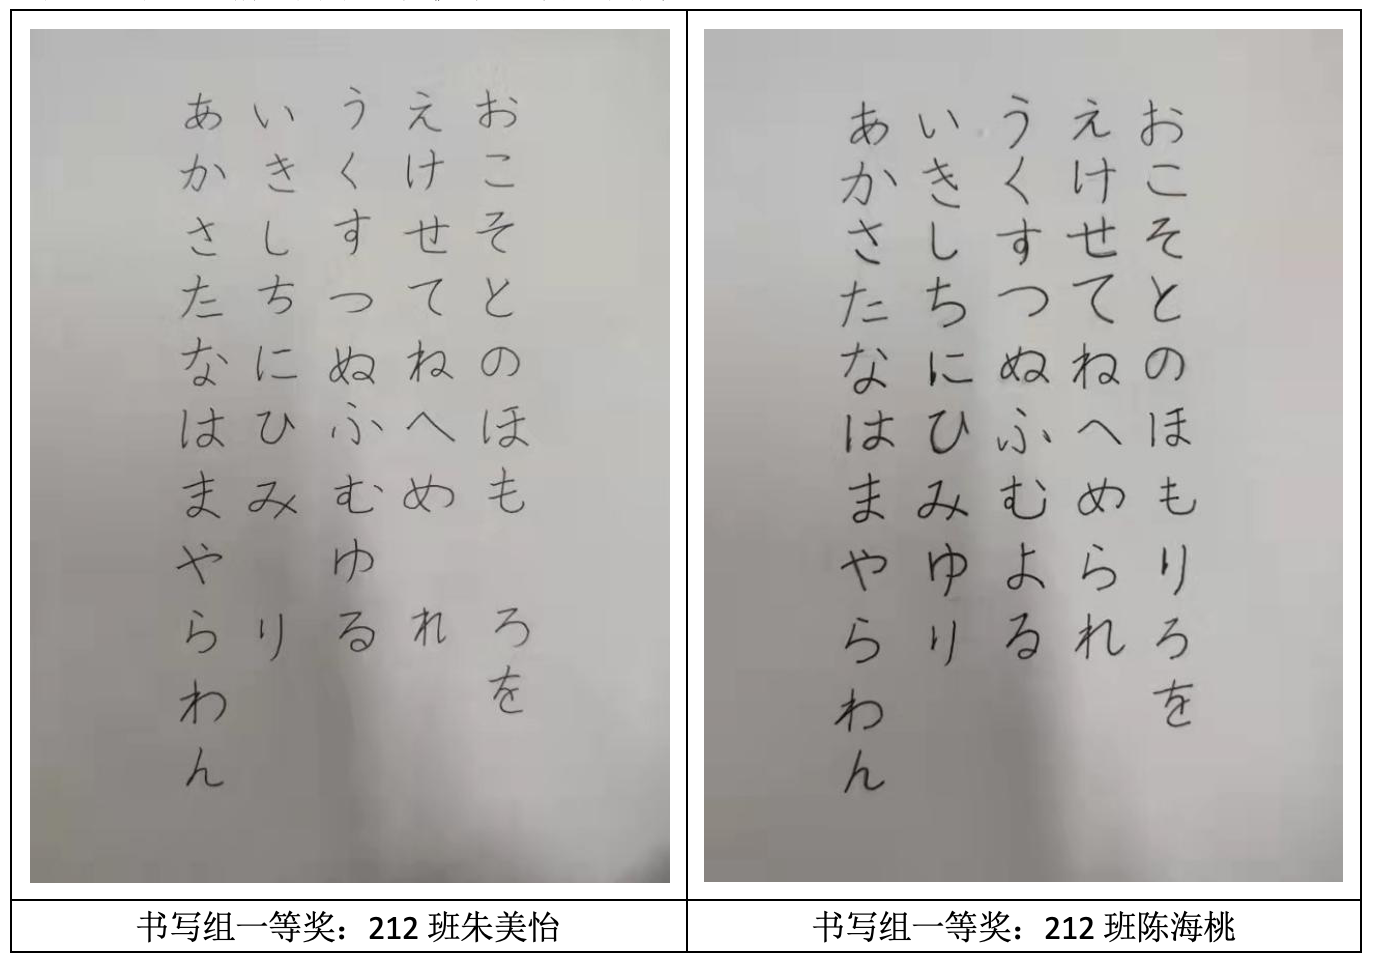 あ い う え お
か き く け こ
さ し す せ そ
た ち つ て と
な に ぬ ね の
は ひ ふ へ ほ
ま み む め も
や ゆ
ら り る れ ろ
わ を
ん
书写组一等奖：212 班朱美怡
あ い う え お
か き く け こ
さ し す せ そ
た ち つ て と
な に ぬ ね の
は ひ ふ へ ほ
ま み む め も
や ゆ よ ら り
ら り る れ ろ
わ を
ん
书写组一等奖：212 班陈海桃